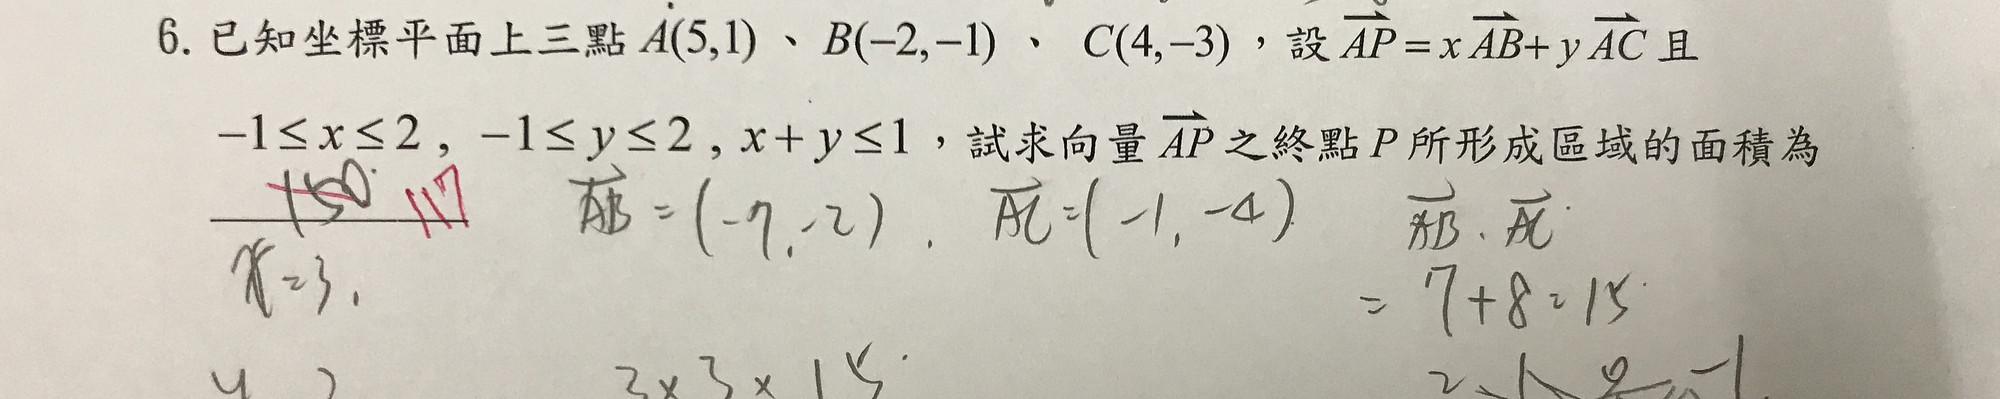 6. 已知坐標平面上三點 A(5,1) 、 B(−2,−1) 、 C(4,−3) ，設 AP = x AB + y AC 且
−1 ≤ x ≤ 2 , −1 ≤ y ≤ 2 , x + y ≤ 1 ，試求向量 AP 之終點 P 所形成區域的面積為
150 117 AB = (-7, -2) . AC = (-1, -4) AB · AC
x = 3 . = 7 + 8 = 15
3 × 3 × 15